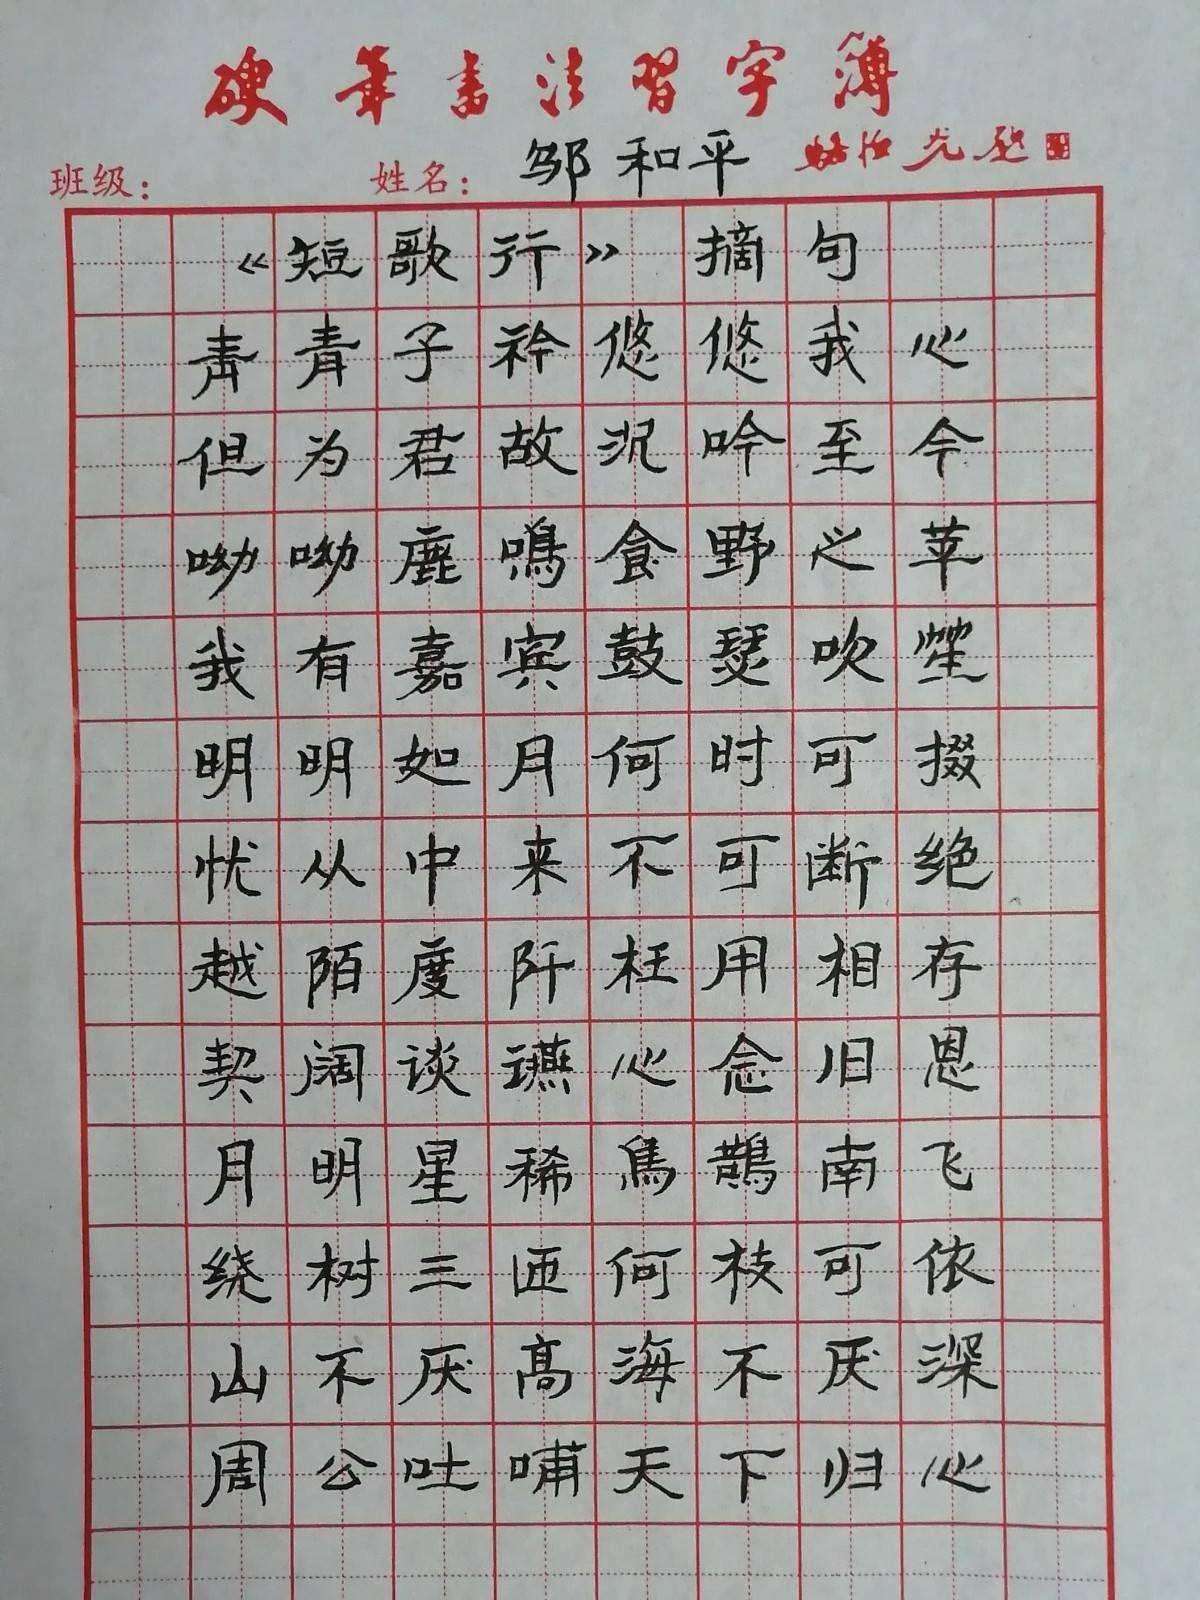 硬笔书法习字簿
班级： 姓名： 邹和平
《短歌行》摘句
青青子衿悠悠我心
但为君故沉吟至今
呦呦鹿鸣食野之苹
我有嘉宾鼓瑟吹笙
明明如月何时可掇
忧从中来不可断绝
越陌度阡枉用相存
契阔谈讌心念旧恩
月明星稀乌鹊南飞
绕树三匝何枝可依
山不厌高海不厌深
周公吐哺天下归心